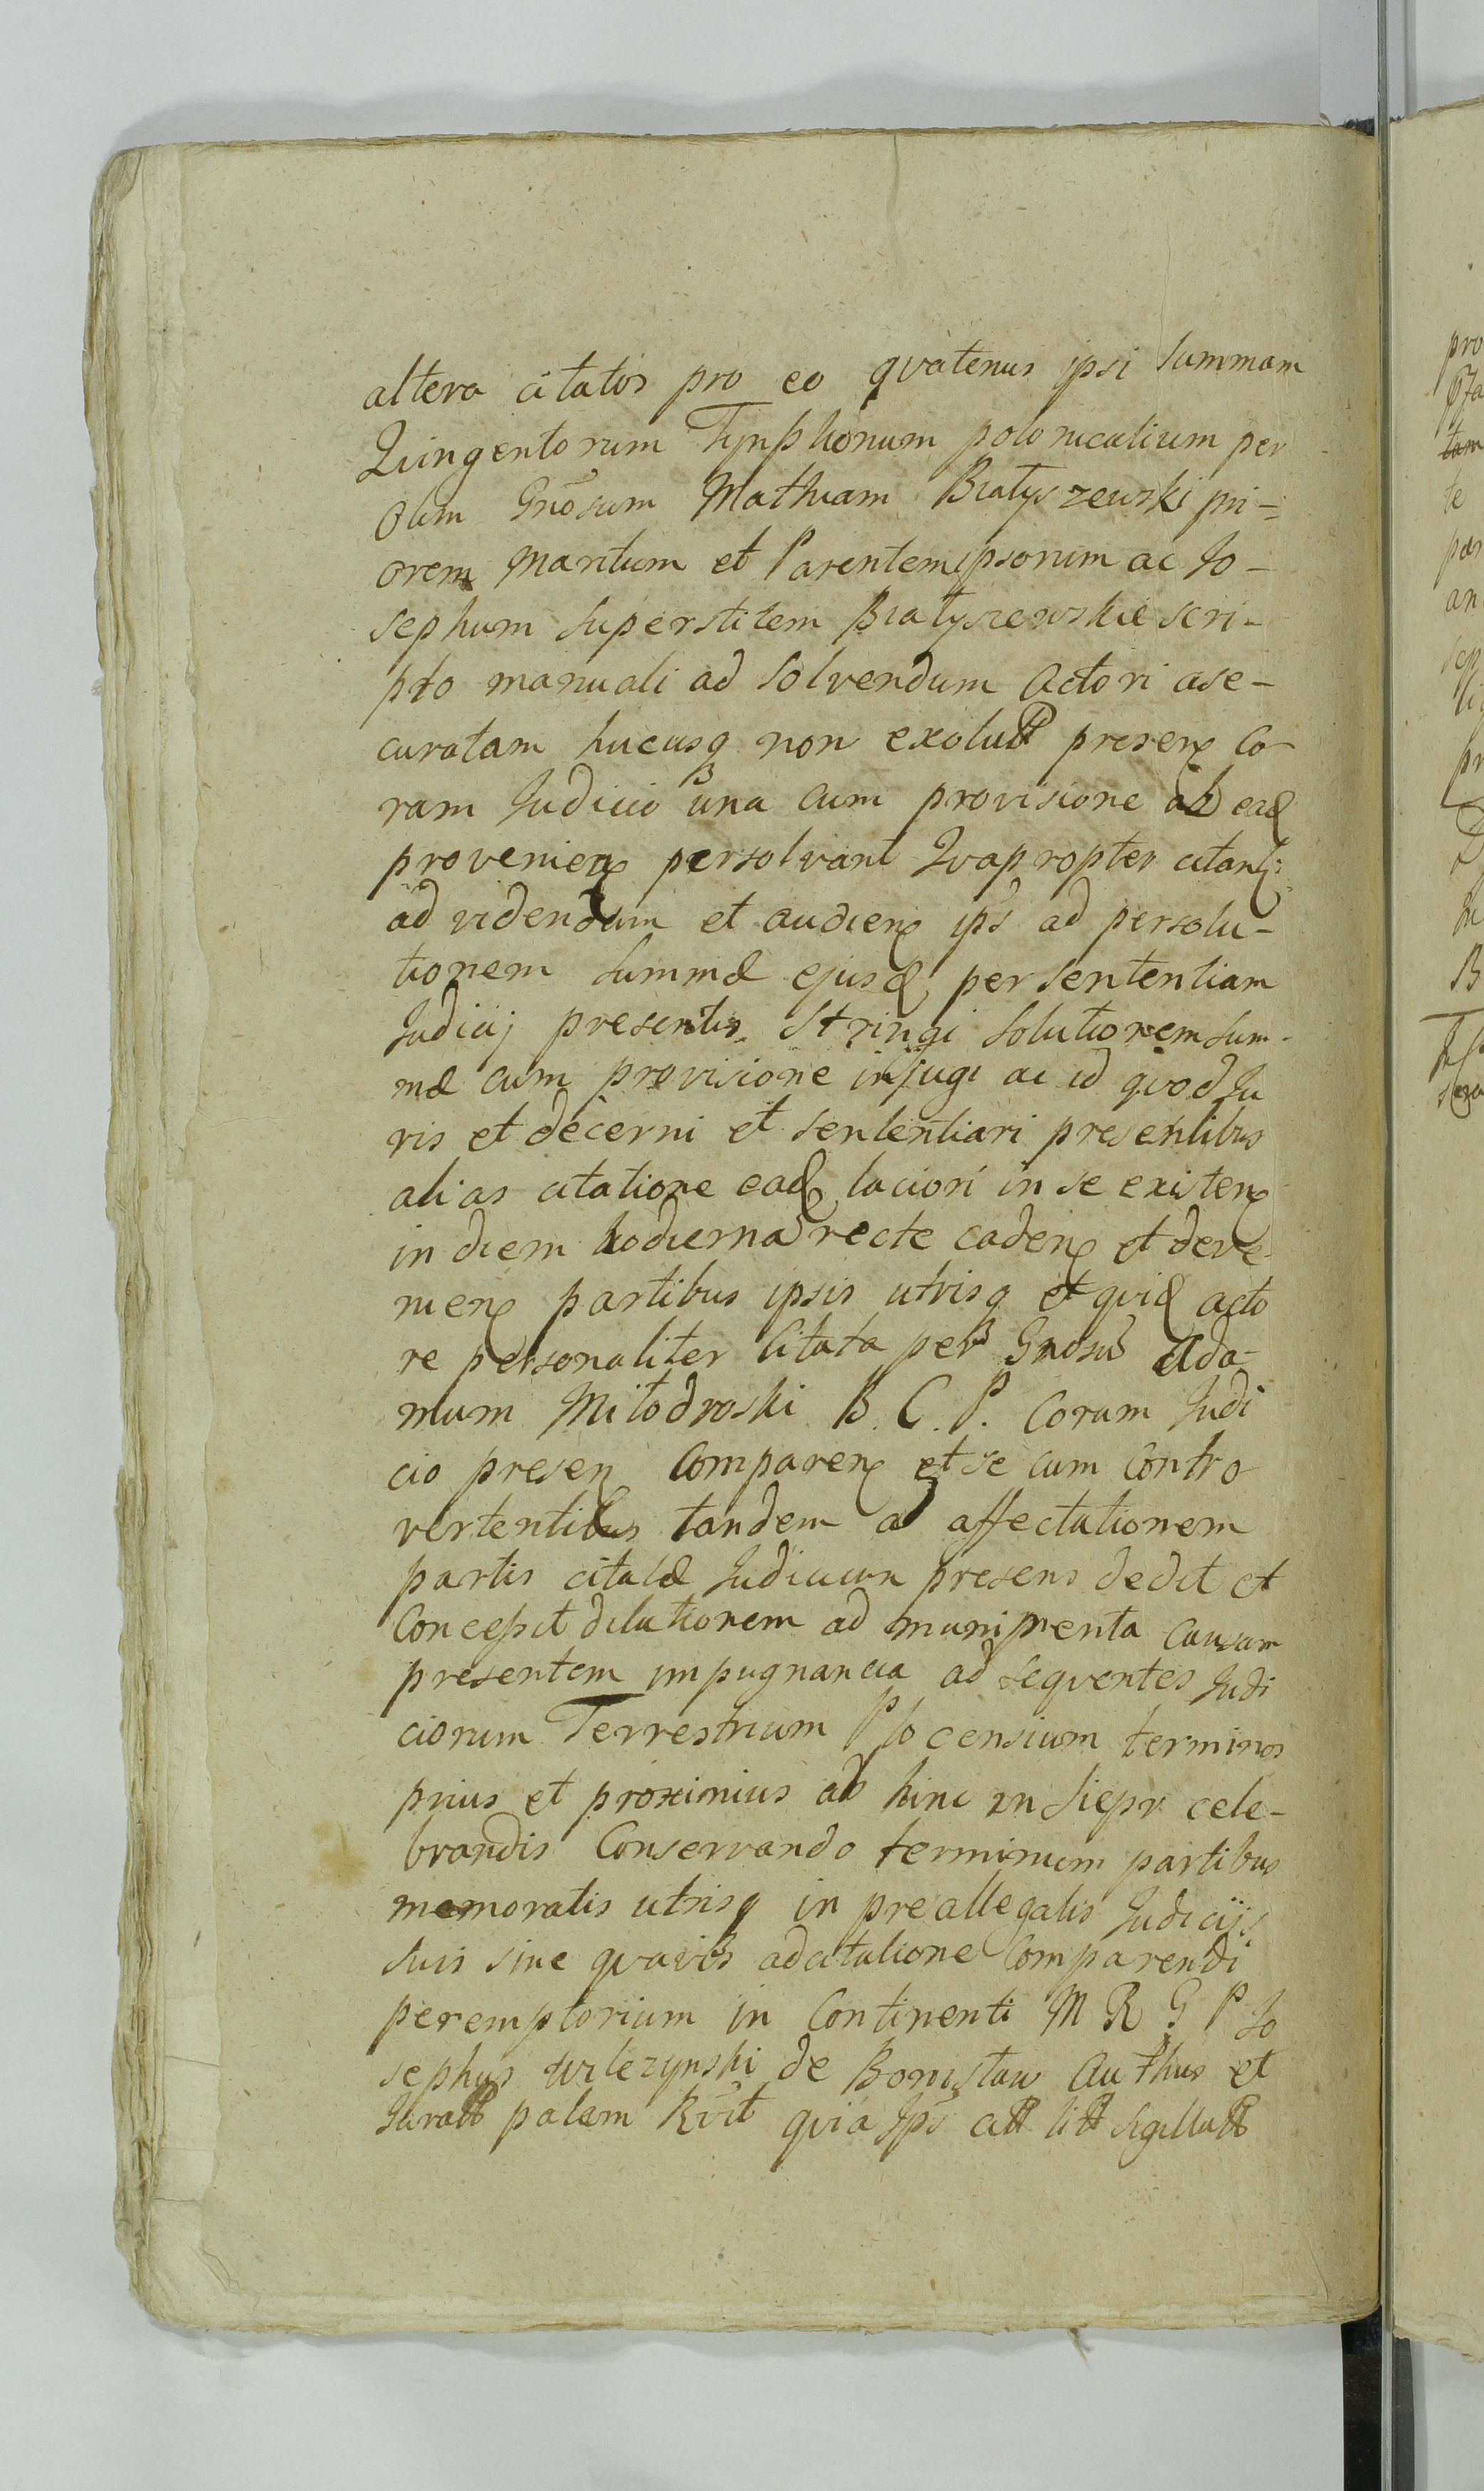 altera citatos pro eo qvatenus ipsi Summam
Qvingentorum Tynphonum polonicalium per
Olim Gnosum Mathiam Białyszewski pri-
orem Maritum et Parentem ipsorum ac Jo-
sephum Superstitem Białyszewskie scri-
pto manuali ad Solvendum Actori asse-
curatam hucusq non exolutt presen Co-
ram Judicio una cum provisione ab ead
provenien persolvant Qvapropter citant
ad videndum et audien ips ad persolu-
tionem Summæ ejusd per Sententiam
Judicij presentis Stringi Solutionem Sum-
mæ cum provisione injugi ac id qvod Ju
ris et decerni et Sententiari presentibus
alias citatione ead laciori in se existen
in diem hodierna recte caden et deve-
nien partibus ipsis utrisq et qvid acto
re personaliter Citata per Gnosu Ada-
mum Miłodroski B. C. P. Coram Judi
cio presen Comparen et se cum Contro
vertentibus tandem ad affectationem
partis citatæ Judicium presens dedit et
Concessit dilationem ad munimenta Causam
presentem impugnancia ad seqventes Judi
ciorum Terrestrium Plocensium terminos
prius et proximius ab hinc in Siepr cele-
brandis Conservando terminum partibus
memoratis utrisq in preallegatis Judicijs
suis sine qvavis adcitatione Comparendi
peremptorium in Continenti M R G P Jo
sephus Wilczynski de Bonisław Authus et
Juratt palam Rvit qvia Ips att litt Sigillatt
pro
tam
te
par
an